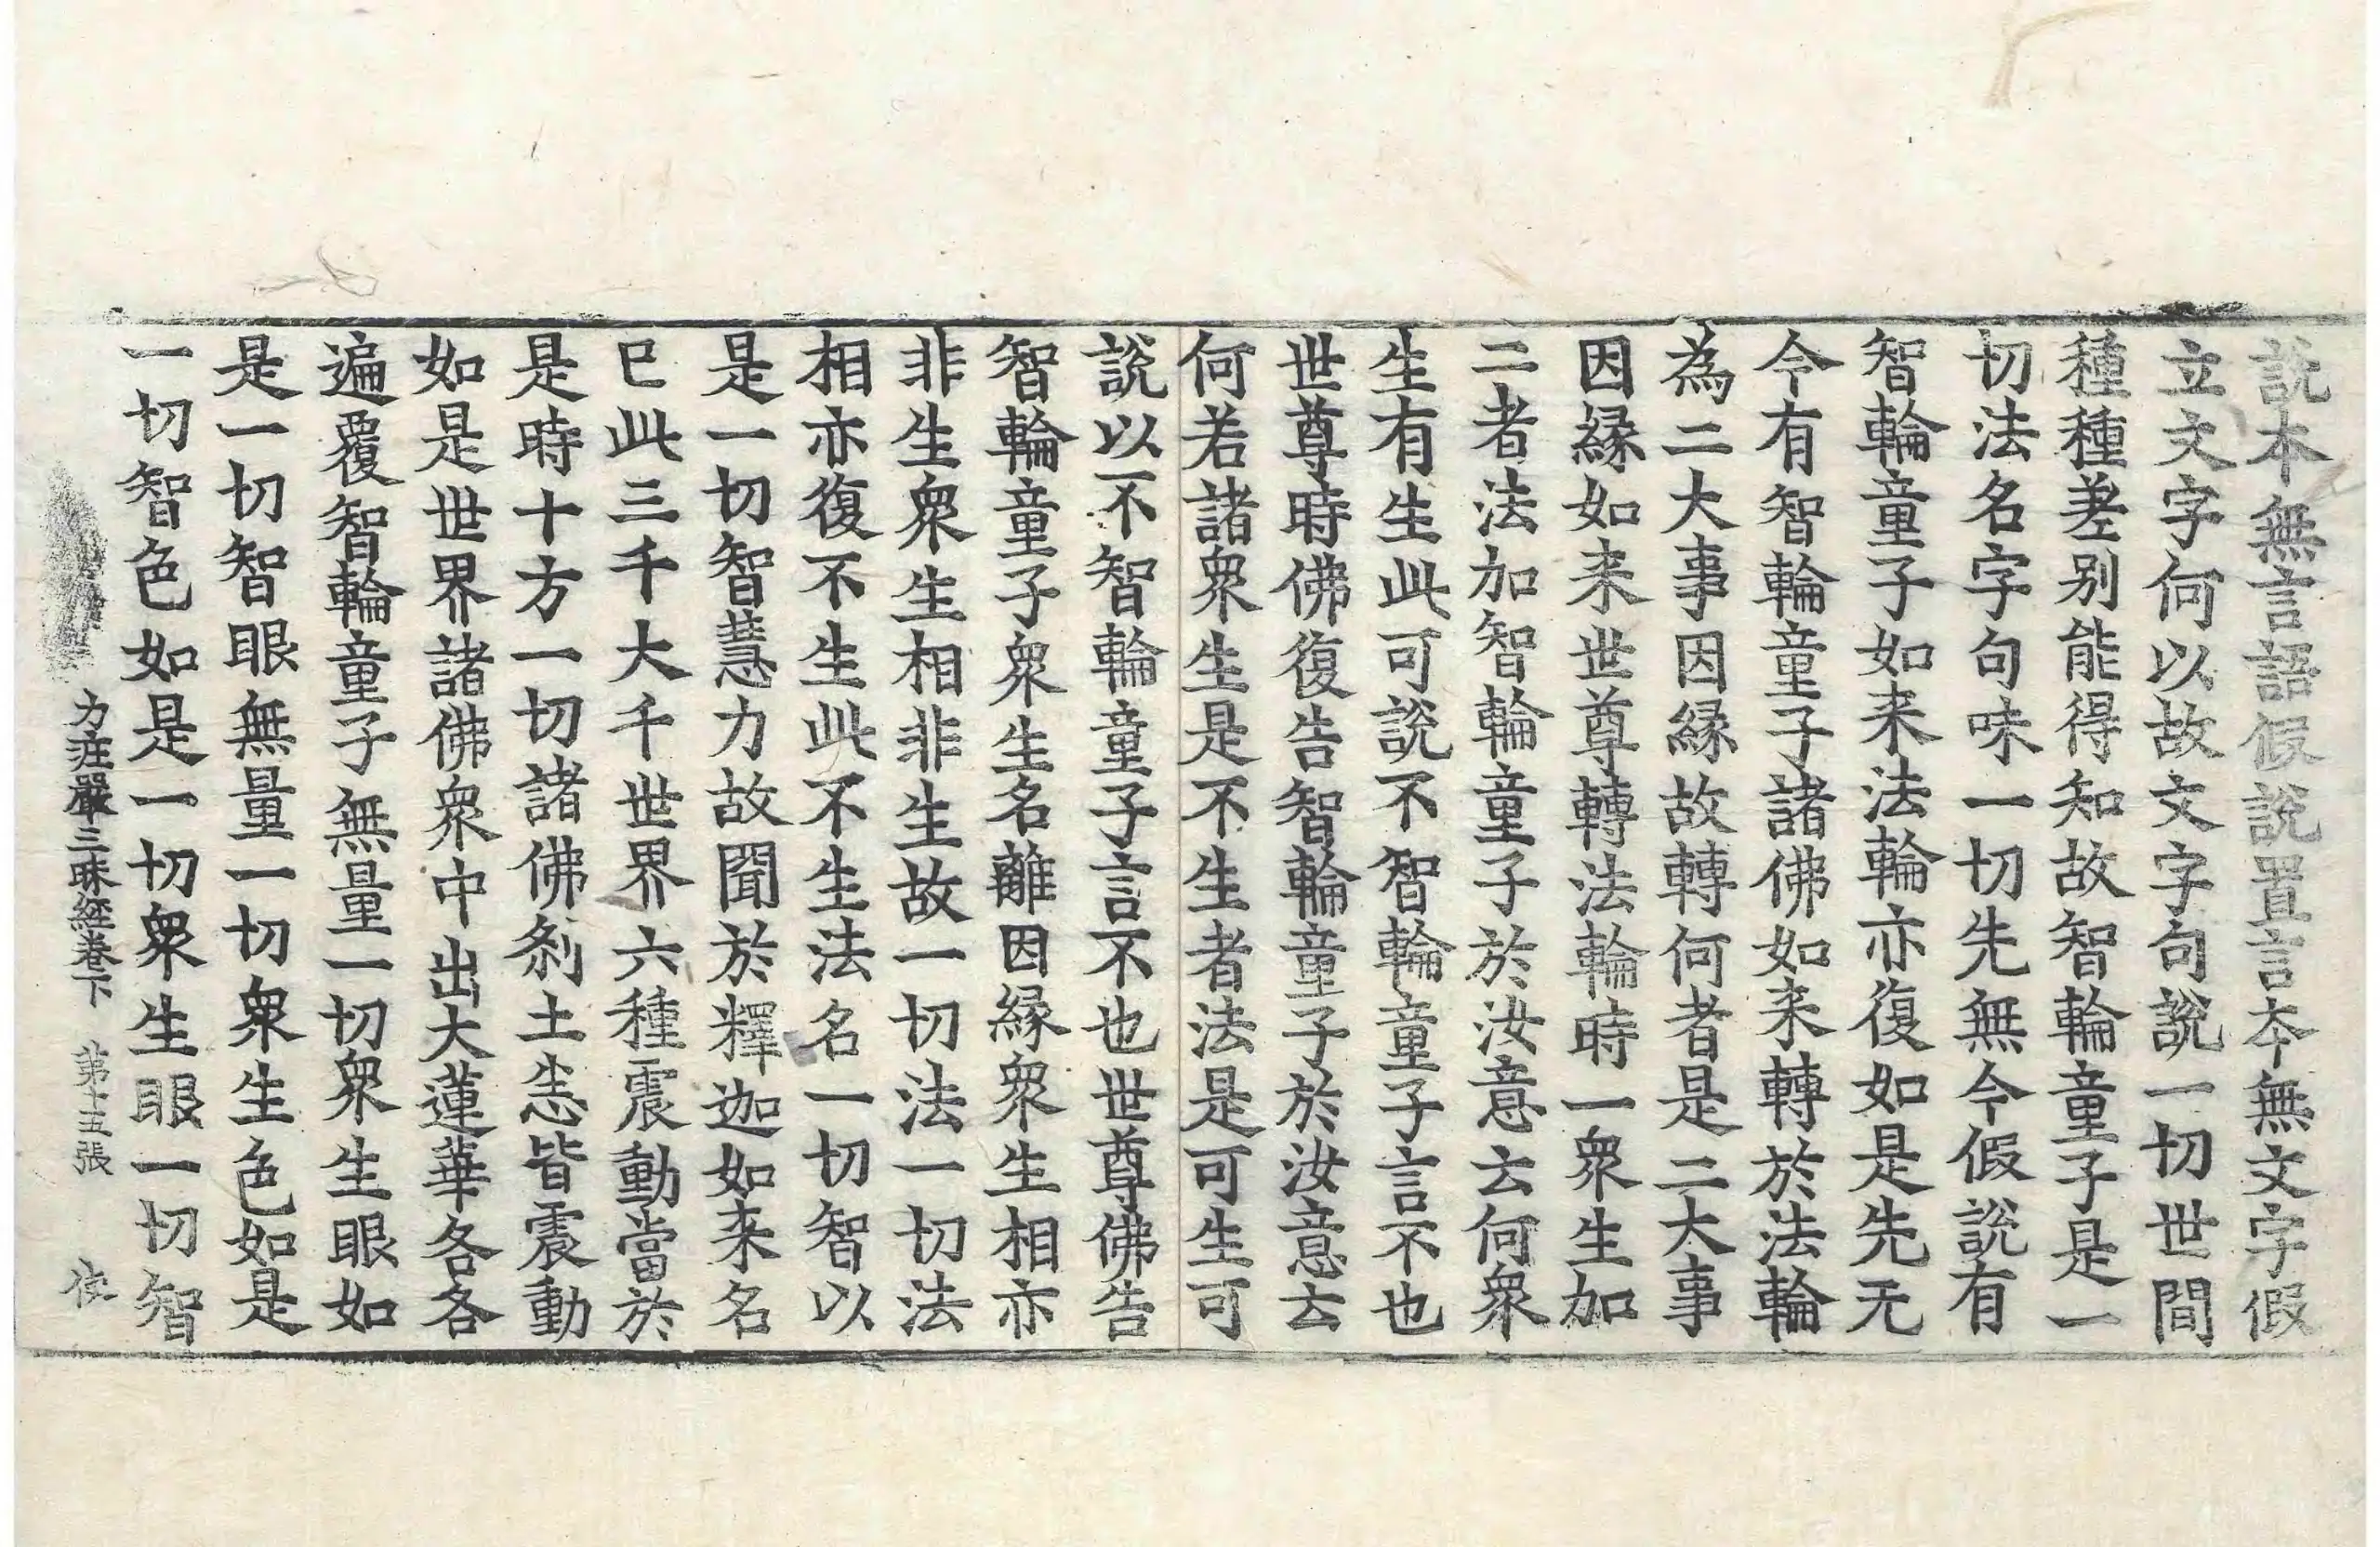 說本無言語假說置言本無文字假
立文字何以故文字句說一切世間
種種差别能得知故智輪童子是一
切法名字句味一切先無今假說有
智輪童子如来法輪亦復如是先无
今有智輪童子諸佛如来轉於法輪
為二大事因縁故轉何者是二大事
因縁如来世尊轉法輪時一衆生加
二者法加智輪童子於汝意云何衆
生有生此可說不智輪童子言不也
世尊時佛復告智輪童子於汝意云
何若諸衆生是不生者法是可生可
說以不智輪童子言不也世尊佛告
智輪童子衆生名離因縁衆生相亦
非生衆生相非生故一切法一切法
相亦復不生此不生法名一切智以
是一切智慧力故聞於釋迦如来名
已此三千大千世界六種震動當於
是時十方一切諸佛刹土恙皆震動
如是世界諸佛衆中出大蓮華各各
遍覆智輪童子無量一切衆生眼如
是一切智眼無量一切衆生色如是
一切智色如是一切衆生眼一切智
力莊嚴三昧經卷下 第十五張